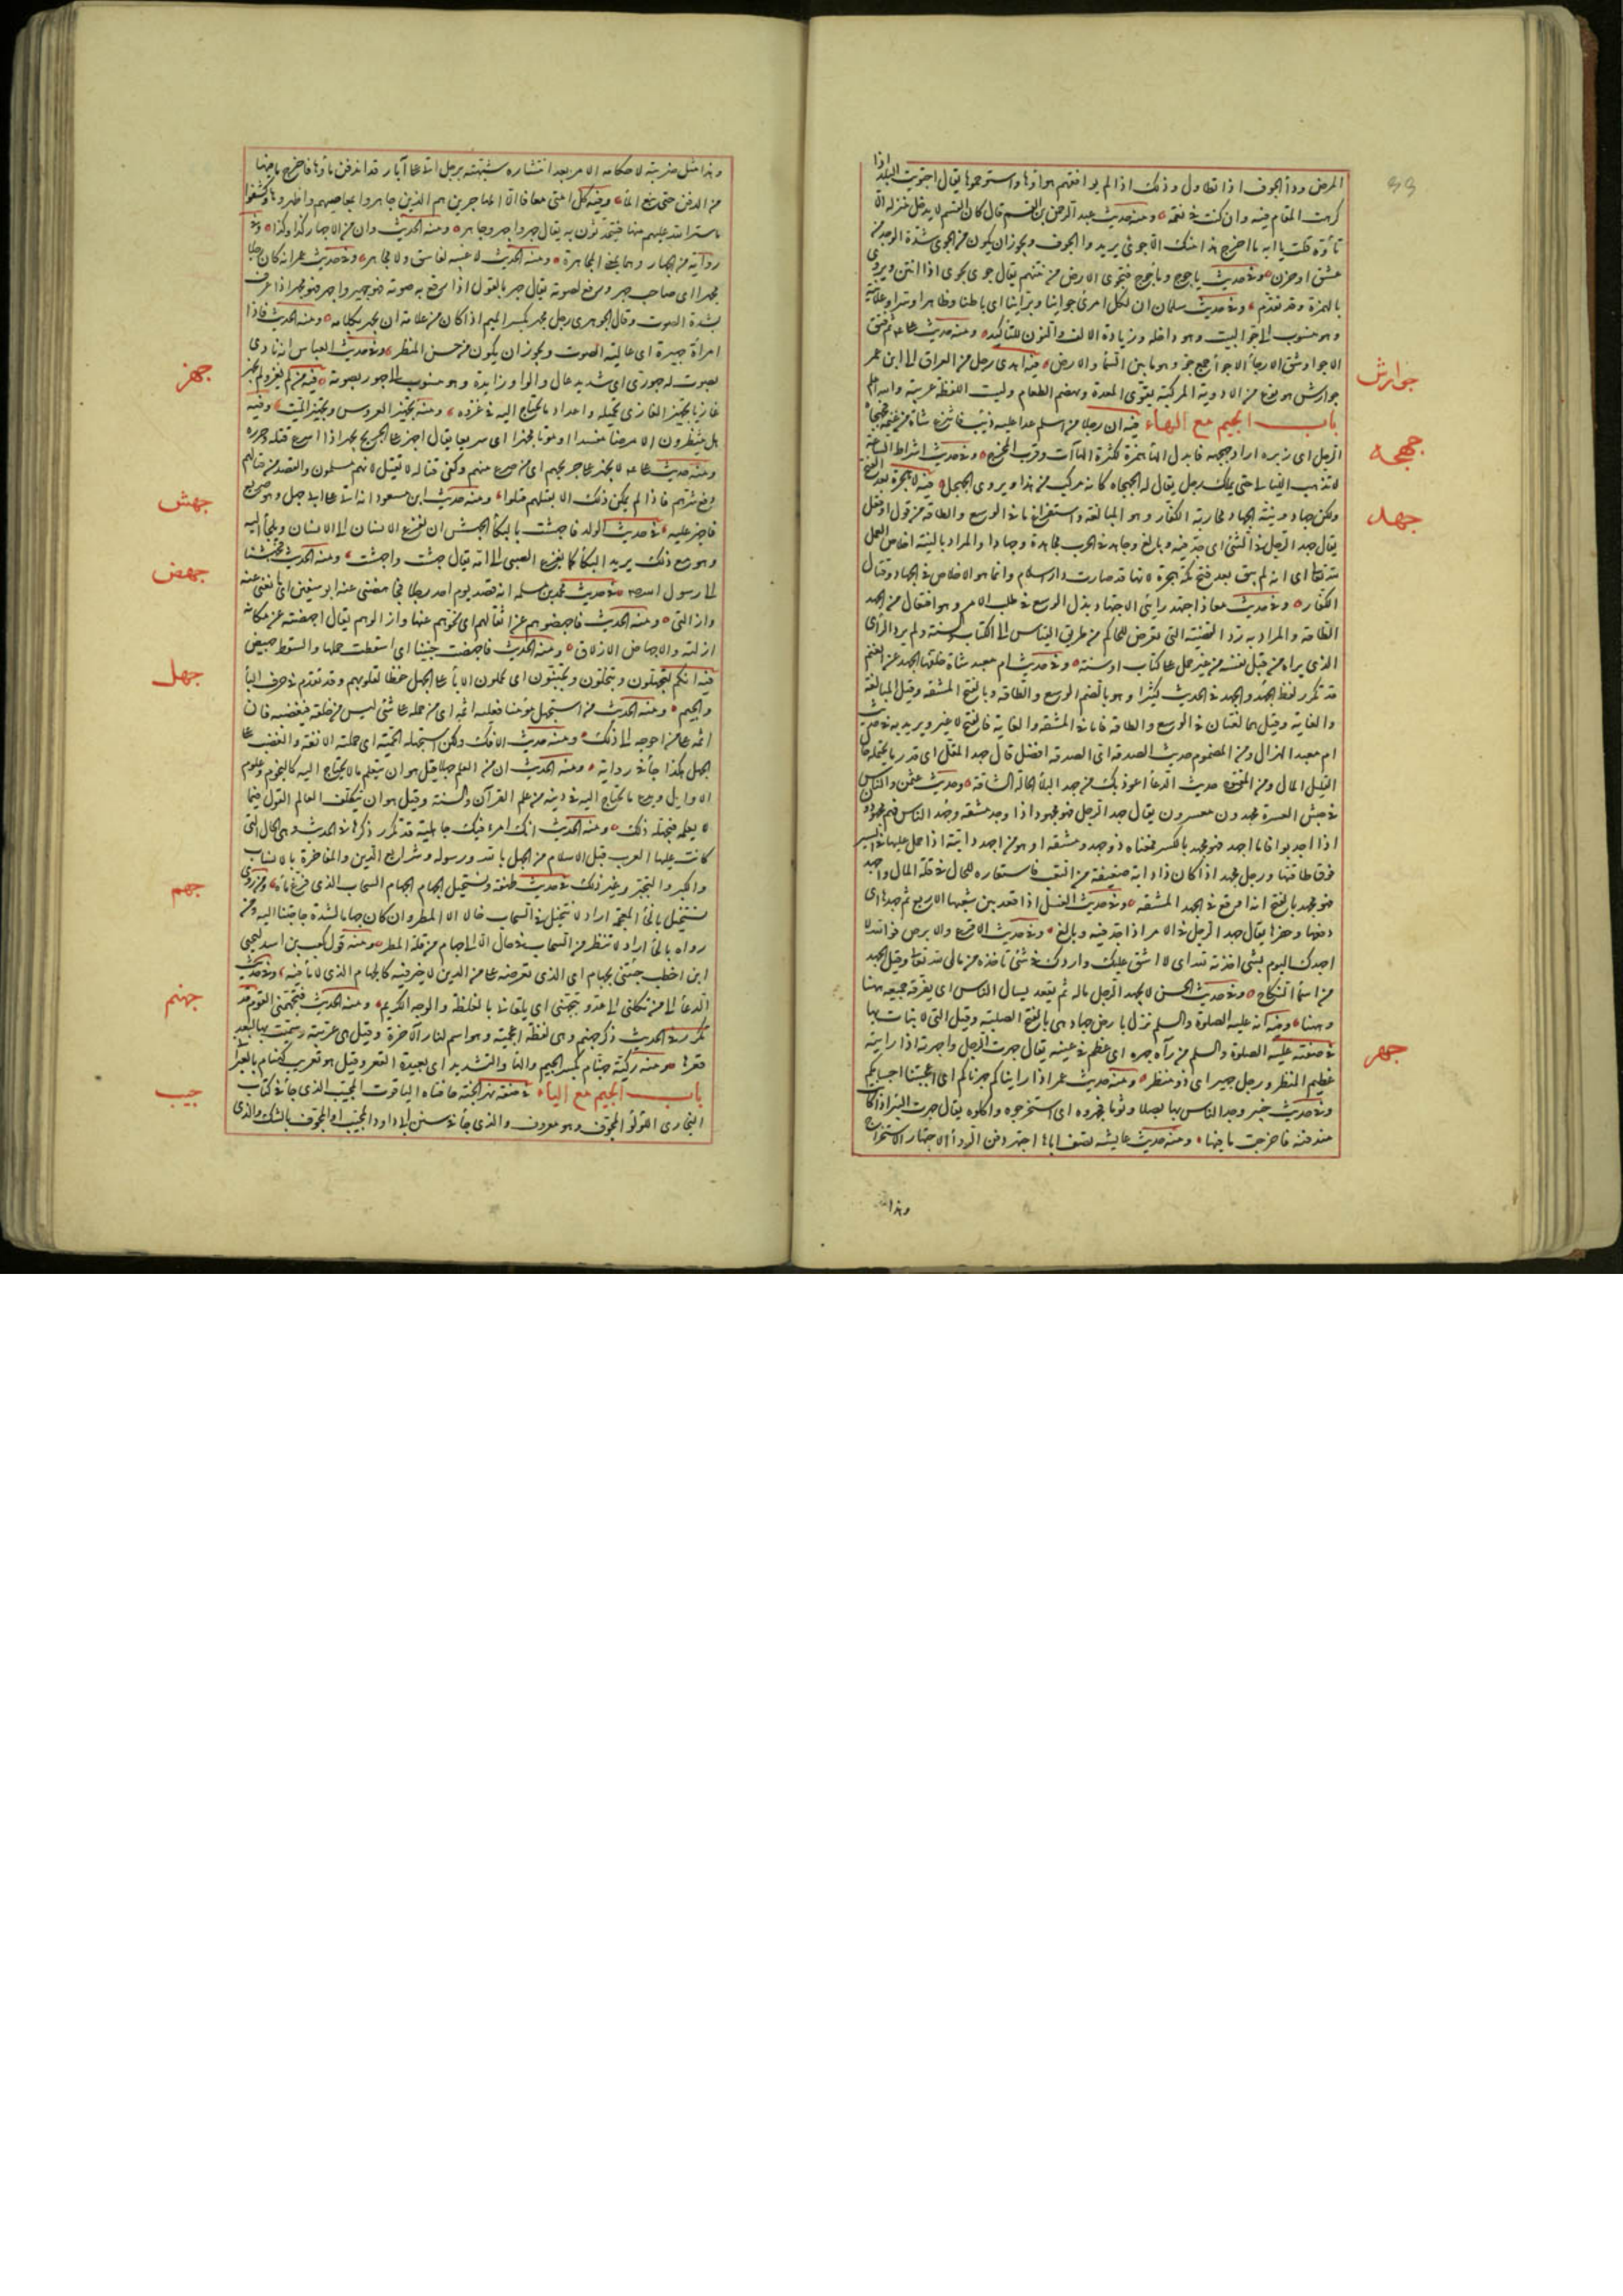 المرض وداء الجوف اذا تطاول وذلك اذا لم يوافقهم هواؤها واستوخموها يقال اجتويت البلد اذا
كرهت المقام فيه وان كنت في نعمة ومنه حديث عبد الرحمن بن القسم قال كان القسم لا يدخل منزله الا
تأوّه قلت يا ابه ما اخرج هذا منك الا جوى يريد داء الجوف ويجوز ان يكون من الجوى شدّة الوجد من
عشق او حزن وفي حديث ياجوج وماجوج فتجوى الارض من نتنهم يقال جوى يجوى اذا انتن ويروى
بالهمزة وقد تقدّم وفي حديث سلمان ان لكل امرئ جوّانيا وبرّانيا اى باطنا وظاهرا وسرا وعلانية
وهو منسوب الى جوّ البيت وهو داخله وزيادة الالف والنون للتاكيد ومنه حديث على ثم فتق
الاجواء وشق الارجاء الاجواء جمع جوّ وهو ما بين السماء والارض فيه اهدى رجل من العراق الى ابن عمر
جوارش
جوارش هو نوع من الادوية المركبة يقوّى المعدة ويهضم الطعام وليست اللفظة عربية والله اعلم
باب الجيم مع الهاء فيه ان رجلا من اسلم عدا عليه ذئب فانتزع شاة من غنمه فجهجاه
جهجه
الرجل اى زبره اراد جهجهه فابدل الهاء همزة لكثرة الهاآت وقرب المخرج وفي حديث اشراط الساعة
لا تذهب الليالى حتى يملك رجل يقال له الجهجاه كانه مركب من هذا ويروى الجهجل فيه لا هجرة بعد الفتح
جهد
ولكن جهاد ونية الجهاد محاربة الكفار وهو المبالغة واستفراغ ما في الوسع والطاقة من قول او فعل
يقال جهد الرجل في الشئ اى جدّ فيه وبالغ وجاهد في الحرب مجاهدة وجهادا والمراد بالنية اخلاص العمل
لله تعالى اى انه لم يبق بعد فتح مكة هجرة لانها قد صارت دار اسلام وانما هو الاخلاص في الجهاد وقتال
الكفار وفي حديث معاذ اجتهد رأيى الاجتهاد بذل الوسع في طلب الامر وهو افتعال من الجهد
الطاقة والمراد به ردّ القضية التى تعرض للحاكم من طريق القياس الى الكتاب والسنة ولم يرد الراى
الذى يراه من قبل نفسه من غير حمل على كتاب او سنة وفي حديث ام معبد شاة خلّفها الجهد عن الغنم
قد تكرر لفظ الجهد والجهد في الحديث كثيرا وهو بالضم الوسع والطاقة وبالفتح المشقة وقيل المبالغة
والغاية وقيل هما لغتان في الوسع والطاقة فاما في المشقة والغاية فالفتح لا غير ويريد به في حديث
ام معبد الهزال ومن المضموم حديث الصدقة اى الصدقة افضل قال جهد المقل اى قدر ما يحتمله حال
القليل المال ومن المفتوح حديث الدعاء اعوذ بك من جهد البلاء الحالة الشاقة وحديث عثمن والناس
في جيش العسرة مجهدون معسرون يقال جهد الرجل فهو مجهود اذا وجد مشقة وجهد الناس فهم مجهودون
اذا اجدبوا فاما اجهد فهو مجهد بالكسر فمعناه ذو جهد ومشقة او هو من اجهد دابته اذا حمل عليها في السير
فوق طاقتها ورجل مجهد اذا كان ذا دابة ضعيفة من التعب فاستعاره للحال في قلة المال واجهد
فهو مجهد بالفتح اى انه اوقع في الجهد المشقة وفي حديث الغسل اذا قعد بين شعبها الاربع ثم جهدها اى
دفعها وحفزها يقال جهد الرجل في الامر اذا جدّ فيه وبالغ وفي حديث الاقرع والابرص فوالله لا
اجهدك اليوم بشئ اخذته لله اى لا اشق عليك واردّك في شئ تاخذه من مالى لله تعالى وقيل الجهد
من اسماء النكاح وفي حديث الحسن لا يجهد الرجل ماله ثم يقعد يسال الناس اى يفرقه جميعه ههنا
وههنا وفيه انه عليه الصلوة والسلم نزل بارض جهاد هى بالفتح الصلبة وقيل التى لا نبات بها
جهر
في صفته عليه الصلوة والسلم من رآه جهره اى عظم في عينه يقال جهرت الرجل واجهرته اذا رايته
عظيم المنظر ورجل جهير اى ذو منظر ومنه حديث عمر اذا رايناكم جهرناكم اى اعجبتنا اجسامكم
وفي حديث خيبر وجد الناس بها بصلا وثوما فجهروه اى استخرجوه واكلوه يقال جهرت البئر اذا كانت
مندفنة فاخرجت ما فيها ومنه حديث عايشة تصف اباها اجتهر دفن الرواء الاجتهار الاستخراج
وهذا
وهذا مثل ضربته لاحكامه الامر بعد انتشاره شبّهته برجل اتى على آبار قد اندفن ماؤها فاخرج ما فيها
من الدفن حتى نبع الماء وفيه كل امتى معافا الا المجاهرين هم الذين جاهروا بمعاصيهم واظهروها وكشفوا
ما ستر الله عليهم منها فيتحدثون به يقال جهر واجهر وجاهر ومنه الحديث وان من الاجهار كذا وكذا وفي
رواية من الجهار وهما بمعنى المجاهرة ومنه الحديث لا غيبة لفاسق ولا مجاهر وفي حديث عمر انه كان رجلا
مجهرا اى صاحب جهر ورفع لصوته يقال جهر بالقول اذا رفع به صوته فهو جهير واجهر فهو مجهر اذا عرف
بشدة الصوت وقال الجوهرى رجل مجهر بكسر الميم اذا كان من عادته ان يجهر بكلامه ومنه الحديث فاذا
امراة جهيرة اى عالية الصوت ويجوز ان يكون من حسن المنظر وفي حديث العباس انه نادى
بصوت له جهورى اى شديد عال والواو زايدة وهو منسوب الى جهور بصوته فيه من لم يغز ولم يجهز
جهز
غازيا تجهيز الغازى تحميله واعداد ما يحتاج اليه في غزوه ومنه تجهيز العروس وتجهيز الميت وفيه
هل ينتظرون الا مرضا مفسدا او موتا مجهزا اى سريعا يقال اجهز على الجريح يجهز اذا اسرع قتله وحرره
ومنه حديث على لا يجهز على جريحهم اى من صرع منهم وكفى قتاله لا يقتل لانهم مسلمون والقصد من قتالهم
دفع شرهم فاذا لم يمكن ذلك الا بقتلهم قتلوا ومنه حديث ابن مسعود انه اتى على ابى جهل وهو صريع
جهش
فاجهز عليه في حديث المولد فاجهشت بالبكاء الجهش ان يفزع الانسان الى الانسان ويلجأ اليه
وهو مع ذلك يريد البكاء كما يفزع الصبى الى امه يقال جهشت واجهشت ومنه الحديث فجهشنا
جهض
الى رسول الله في حديث محمد بن مسلمة انه قصد يوم احد رجلا فجاهضنى عنه ابو سفين اى مانعنى عنه
وازالنى ومنه الحديث فاجهضوهم عن اثقالهم اى نحّوهم عنها وازالوهم يقال اجهضته عن مكانه
ازلته والاجهاض الازلاق ومنه الحديث فاجهضت جنينها اى اسقطت حملها والسقط جهيض
جهل
فيه انكم لتجهلون وتبخلون وتجبنون اى تحملون الاباء على الجهل حفظا لقلوبهم وقد تقدّم في حرف الباء
والجيم ومنه الحديث من استجهل مؤمنا فعليه اثمه اى من حمله على شئ ليس من خلقه فيغضبه فان
اثمه على من احوجه الى ذلك ومنه حديث الافك ولكن استجهلته الحمية اى حملته الانفة والغضب على
الجهل هكذا جاء في رواية ومنه الحديث ان من العلم جهلا قيل هو ان يتعلم ما لا يحتاج اليه كالنجوم وعلوم
الاوايل ويدع ما يحتاج اليه في دينه من علم القرآن والسنة وقيل هو ان يتكلف العالم القول فيما
لا يعلمه فيجهله ذلك ومنه الحديث انك امرؤ فيك جاهلية قد تكرر ذكرها في الحديث وهى الحال التى
كانت عليها العرب قبل الاسلام من الجهل بالله ورسوله وشرايع الدين والمفاخرة بالانساب
جهم
والكبر والتجبر وغير ذلك في حديث طهفة ونستحيل الجهام الجهام السحاب الذى فرغ ماؤه ومن روى
نستخيل بالخاء المعجمة اراد لا نتخيل في السحاب خالا الا المطر وان كان جهاما لشدة حاجتنا اليه ومن
رواه بالحاء اراد لا ننظر من السحاب في حال الا الى جهام من قلة المطر ومنه قول كعب بن اسد لحيى
ابن اخطب جئتنى بجهام اى الذى تعرضه على من الدين لا خير فيه كالجهام الذى لا ماء فيه وفي حديث
الدعاء الى من تكلنى الى عدو يتجهمنى اى يلقانى بالغلظة والوجه الكريه ومنه الحديث فتجهمنى القوم قد
جهنم
تكرر في الحديث ذكر جهنم وهى لفظة اعجمية وهو اسم لنار الآخرة وقيل هى عربية وسميت بها لبعد
قعرها ومنه ركية جهنّام بكسر الجيم والهاء والتشديد اى بعيدة القعر وقيل هو تعريب كهنام بالعبرانى
جيب
باب الجيم مع الياء في صفة نهر الجنة حافتاه الياقوت المجيّب الذى جاء في كتاب
البخارى اللؤلؤ المجوّف وهو معروف والذى جاء في سنن ابى داود المجيّب او المجوّف بالشك والذى